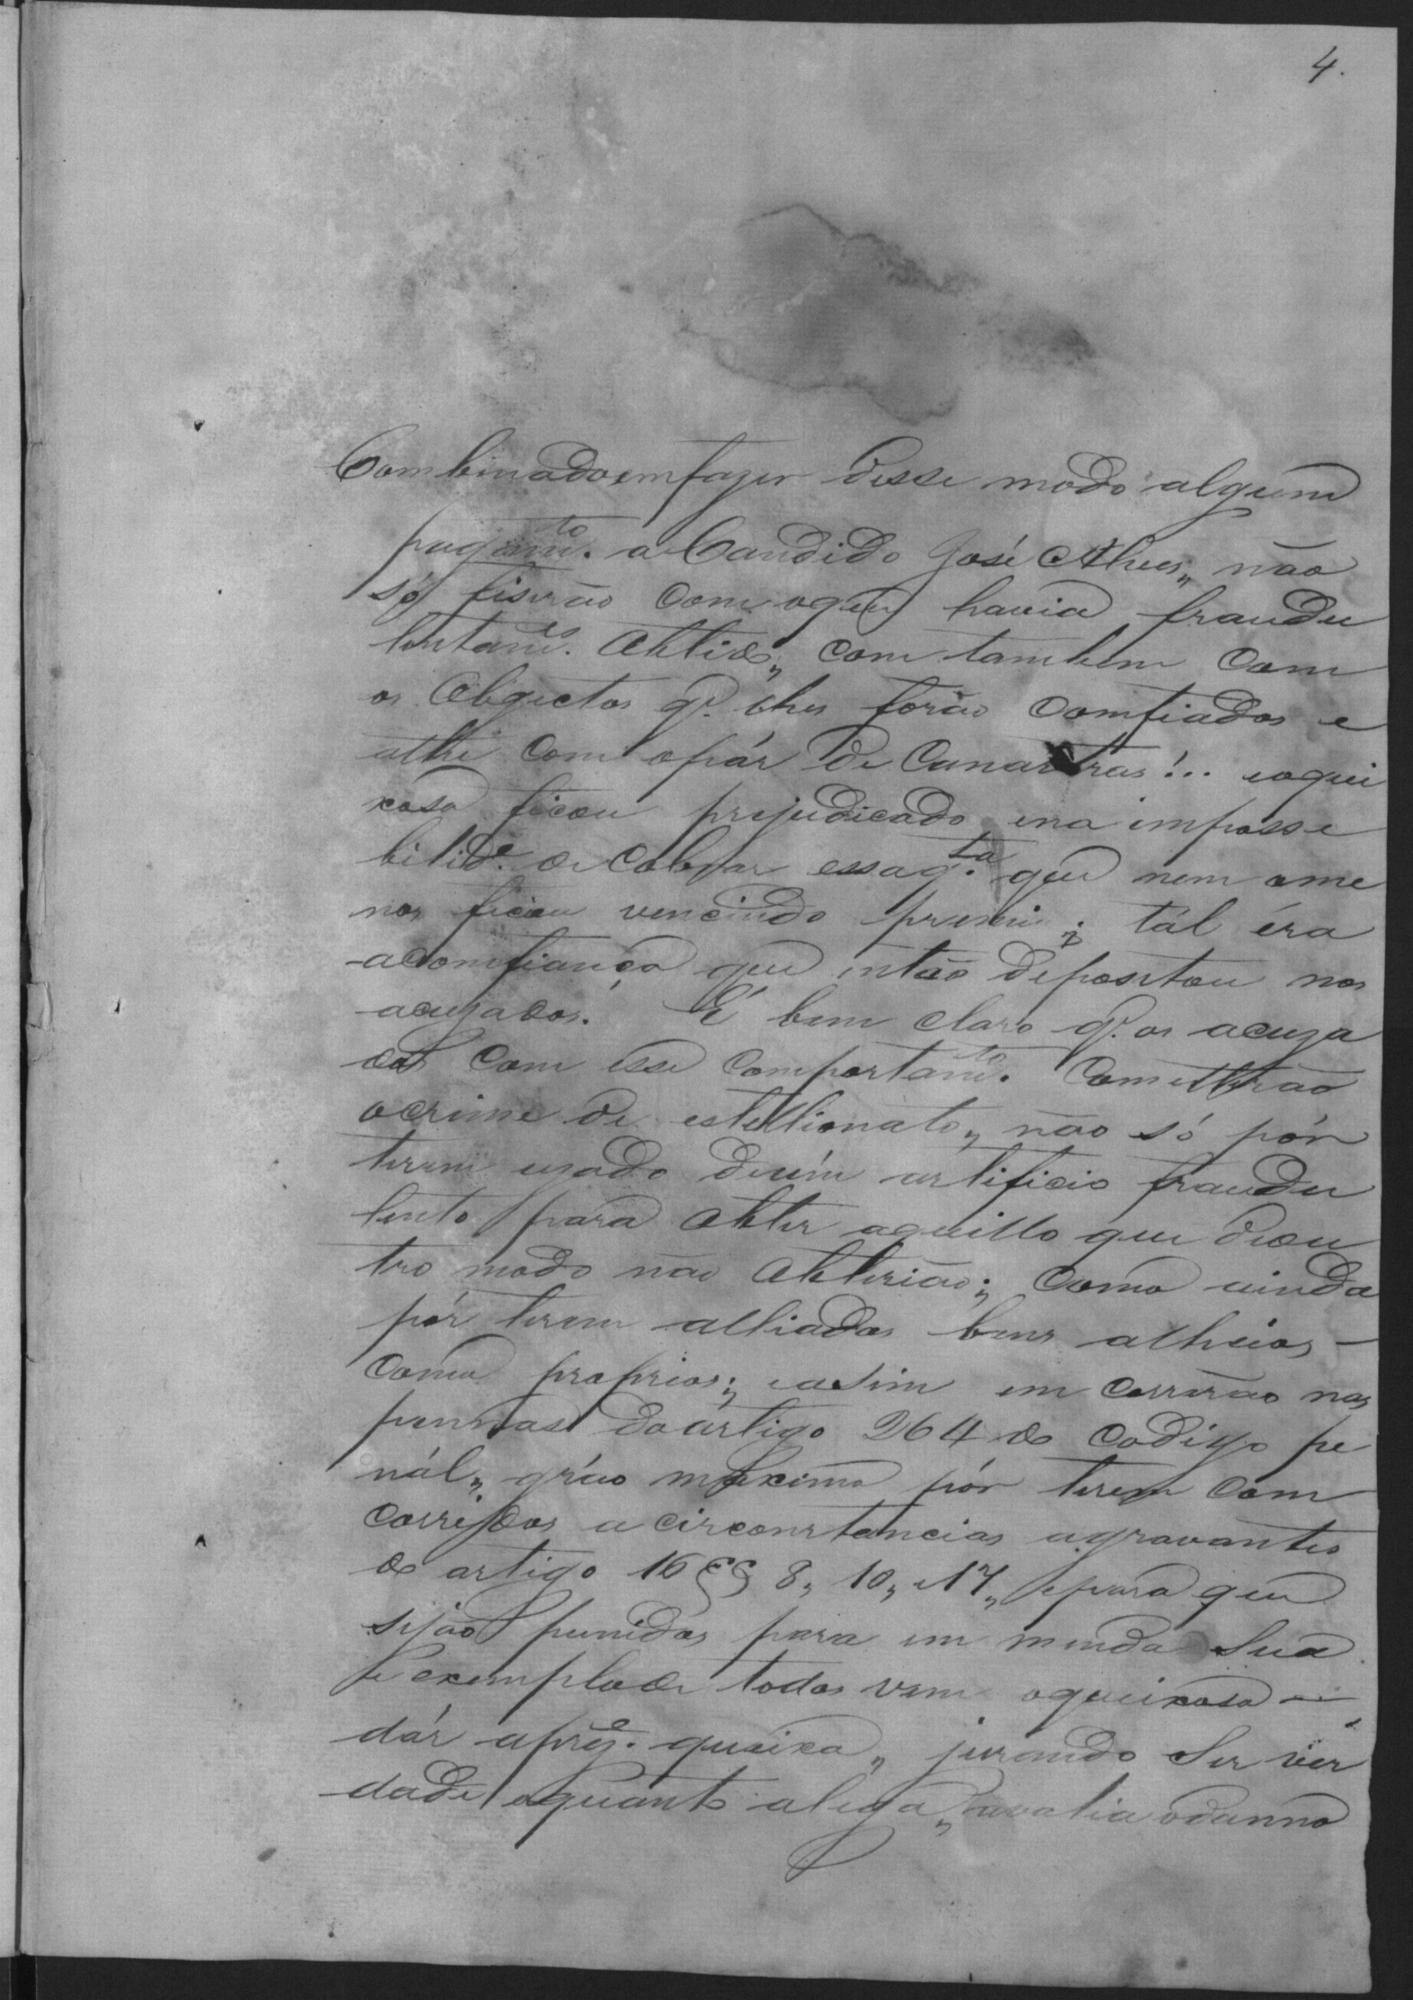 4.
Combinado em fazer desse modo algum
pagam.to a Candido José Alves,, não
só fiserão com oque havia fraudu
lentam.es obtido,, com tambem com
os obgectos q.' lhes forão comfiados e
athé com o pár de Canastras!.. eoquei
xoso ficou prejudicado ena imposse
bilid.e de cobrar essa q.ta que nem ame
nos ficou vencindo premio; tál éra
acomfiança que então depositou nos
acuzados. É bem claro q.' os acuza
dos com esse comportam.to Cometterão
ocrime de estellionato,, não só pór
terem uzado deúm artificio fraudu
lento para obter aquillo que deou
tro modo não obterião; como ainda
pór terem alliados bens alheios —
como proprios; easim em correrão nas
pennas do ártigo 264 do Codigo pe
nál,, gráo maximo pór terem com
corridos a circonstancias agravantes
do artigo 16 §§ 8,, 10,, e17,, epara que
sijão punidos para em menda Sua
e exemplo de todos vem oqueixoso —
dár a prez.e queixa,, jurando Ser ver
dade oquanto alega,, avalia odanno